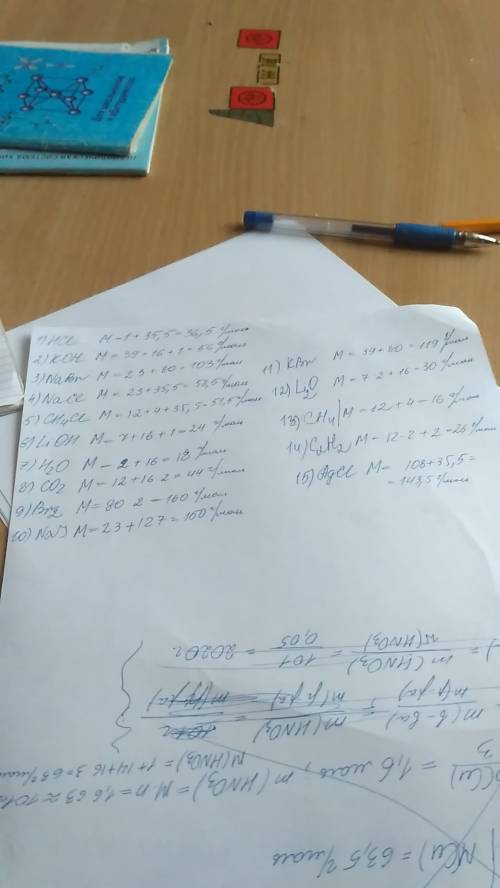 1) HCl M = 1 + 35,5 = 36,5 г/моль
2) KOH M = 39 + 16 + 1 = 56 г/моль
3) NaBr M = 23 + 80 = 103 г/моль
4) NaCl M = 23 + 35,5 = 58,5 г/моль
5) CH4Cl M = 12 + 4 + 35,5 = 51,5 г/моль
6) LiOH M = 7 + 16 + 1 = 24 г/моль
7) H2O M = 2 + 16 = 18 г/моль
8) CO2 M = 12 + 16·2 = 44 г/моль
9) Br2 M = 80·2 = 160 г/моль
10) NaJ M = 23 + 127 = 150 г/моль
11) KBr M = 39 + 80 = 119 г/моль
12) Li2O M = 7·2 + 16 = 30 г/моль
13) CH4 M = 12 + 4 = 16 г/моль
14) C2H2 M = 12·2 + 2 = 26 г/моль
15) AgCl M = 108 + 35,5 =
= 143,5 г/моль
M(Cu) = 63,5 г/моль
= 1,6 моль, m(HNO3) = M·n = 1,6·63 ≈ 101г
M(HNO3) = 1 + 14 + 16·3 = 63 г/моль
m(HNO3)
= 101 / 0,05 = 2020 г